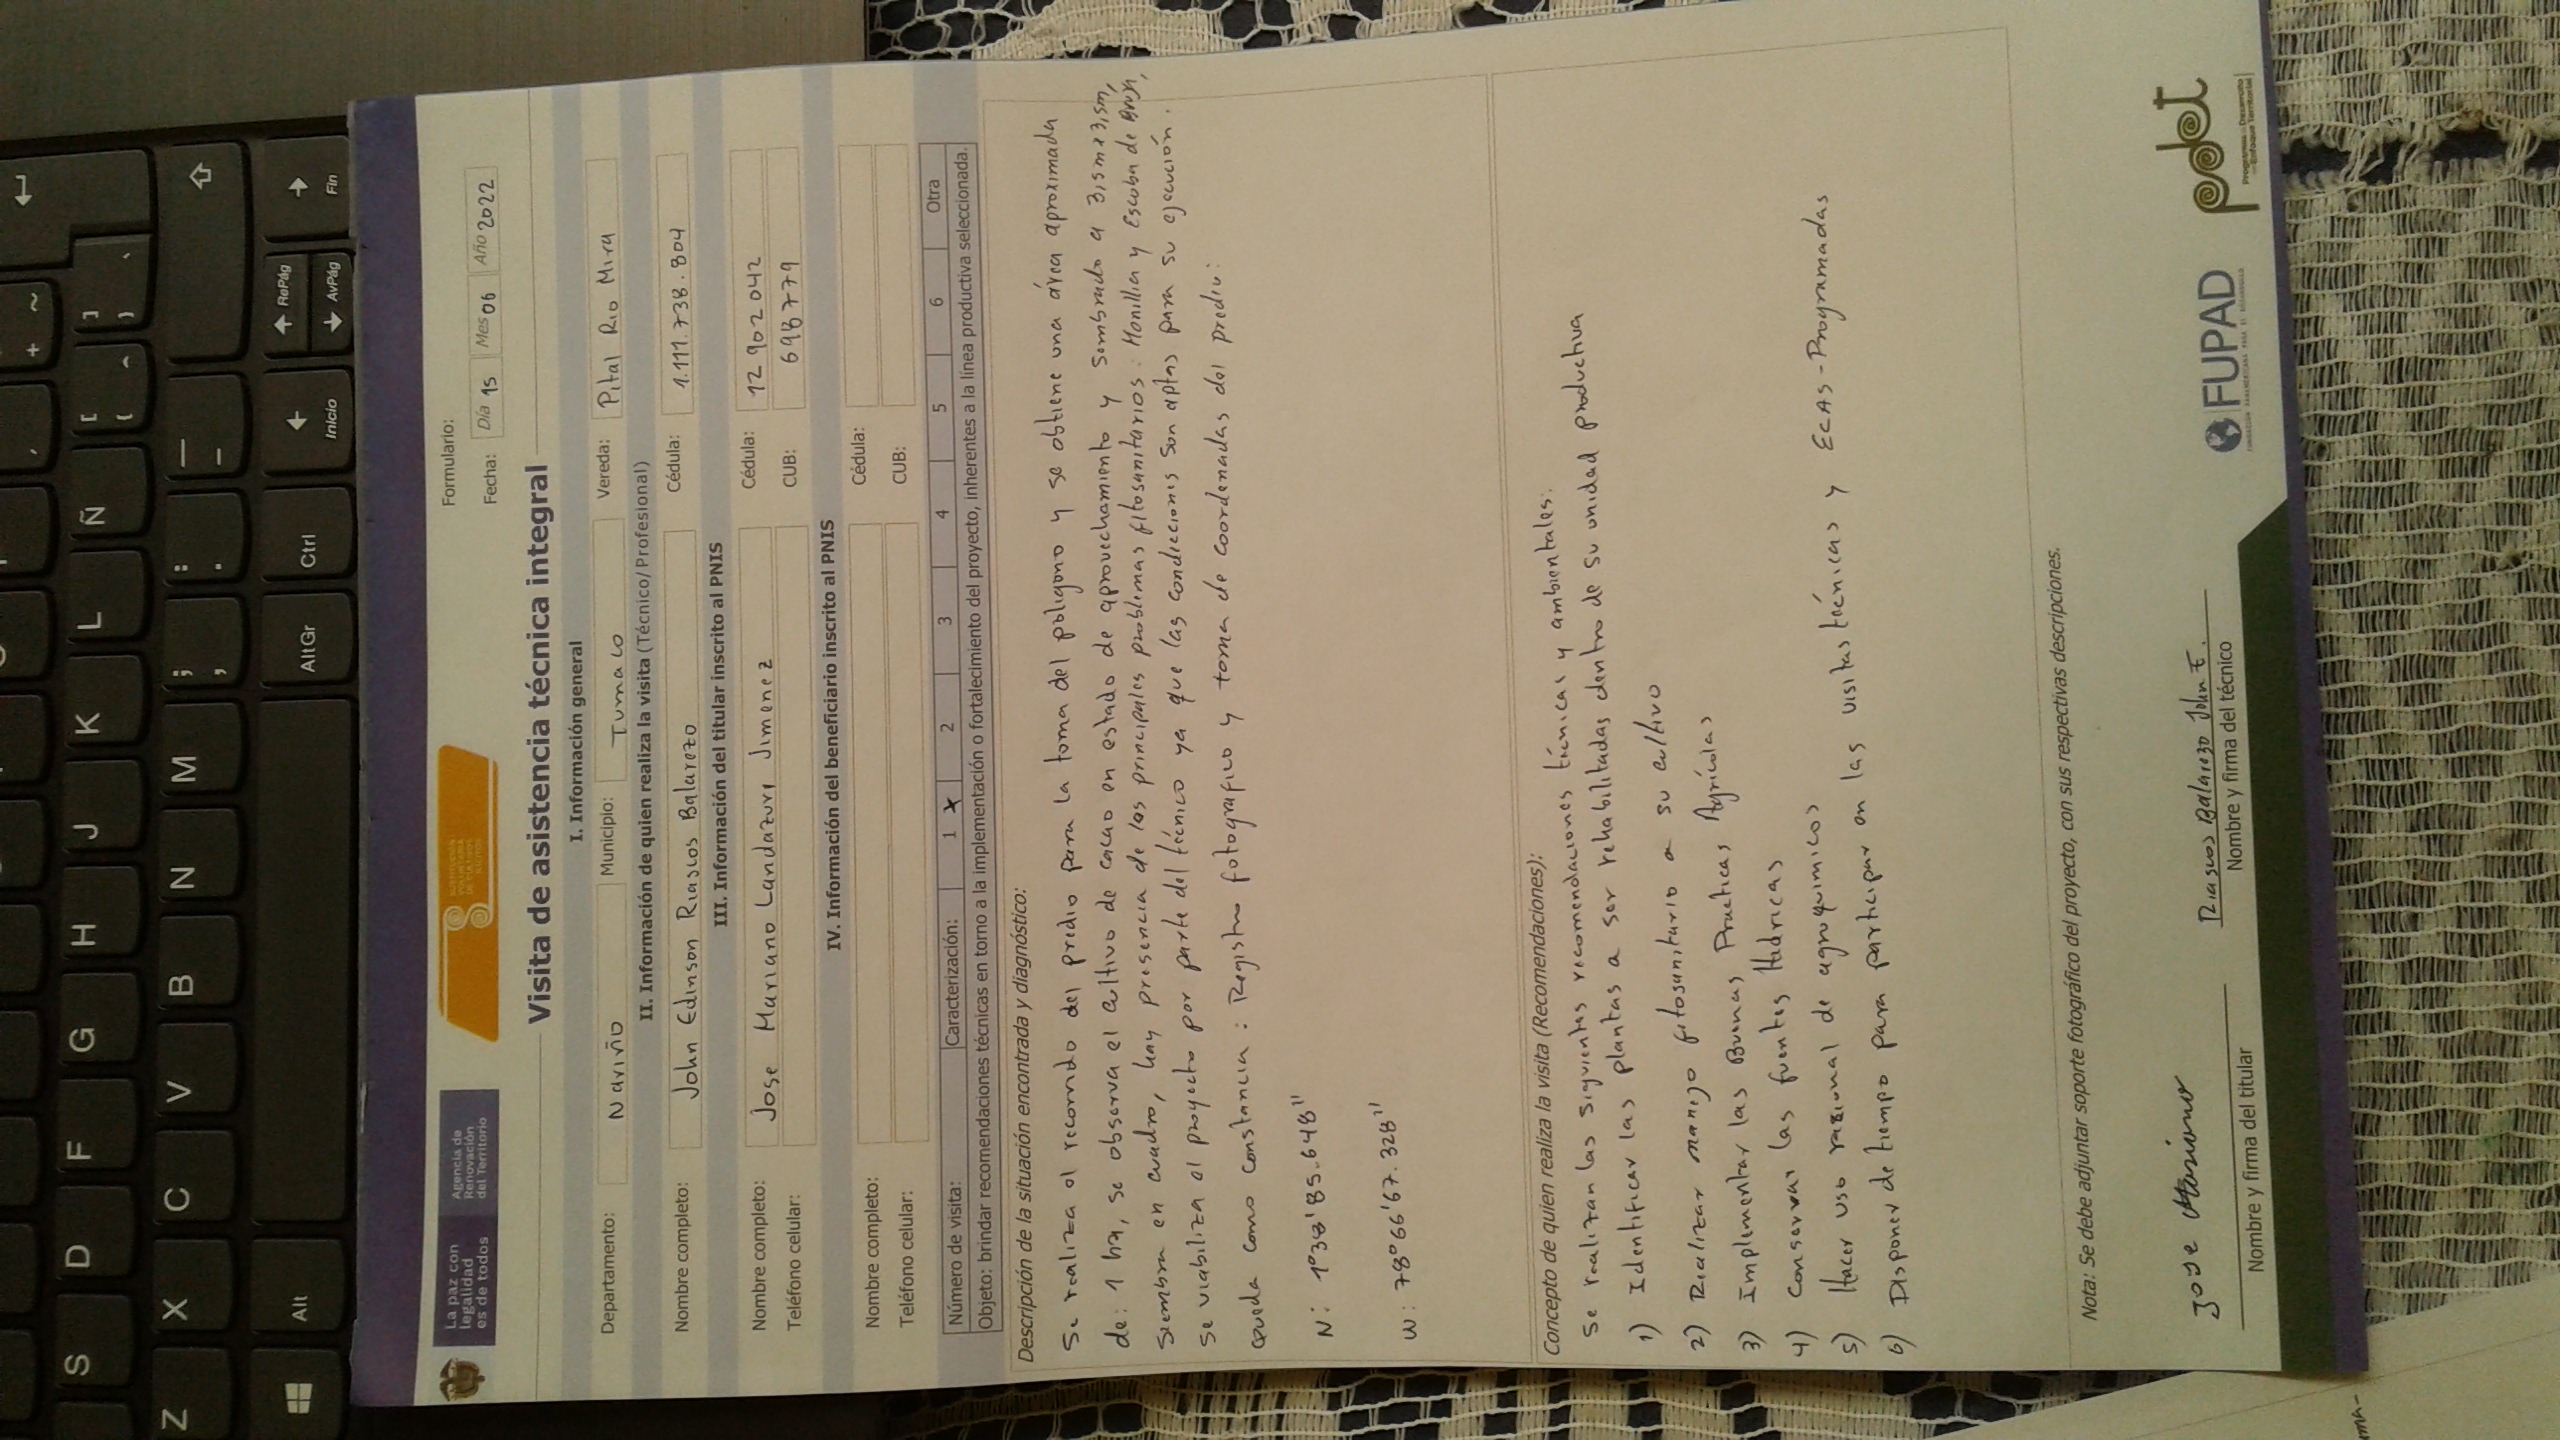 La paz con legalidad es de todos
Agencia de Renovación del Territorio
Formulario:
Fecha: Día 15 Mes 06 Año 2022
Visita de asistencia técnica integral
I. Información general
Departamento: Nariño Municipio: Tumaco Vereda: Pital Rio Mira
II. Información de quien realiza la visita (Técnico/Profesional)
Nombre completo: John Edinson Riascos Balarezo Cédula: 1.111.738.804
III. Información del titular inscrito al PNIS
Nombre completo: Jose Mariano Landazuri Jimenez Cédula: 12 902 042
Teléfono celular: CUB: 698779
IV. Información del beneficiario inscrito al PNIS
Nombre completo: Cédula:
Teléfono celular: CUB:
Número de visita: Caracterización: 1 x 2 3 4 5 6 Otra
Objeto: brindar recomendaciones técnicas en torno a la implementación o fortalecimiento del proyecto, inherentes a la línea productiva seleccionada.
Descripción de la situación encontrada y diagnóstico:
Se realiza el recorrido del predio para la toma del poligono y se obtiene una área aproximada
de: 1 ha, se observa el cultivo de cacao en estado de aprovechamiento y sembrado a 3,5m x 3,5m,
siembra en cuadro, hay presencia de los principales problemas fitosanitarios: Monilia y Escoba de Bruja,
se viabiliza el proyecto por parte del técnico ya que las condiciones son aptas para su ejecución.
queda como constancia: Registro fotografico y toma de coordenadas del predio:
N: 1°38'85.648"
W: 78°66'67.328"
Concepto de quien realiza la visita (Recomendaciones):
Se realizan las siguientes recomendaciones técnicas y ambientales:
1) Identificar las plantas a ser rehabilitadas dentro de su unidad productiva
2) Realizar manejo fitosanitario a su cultivo
3) Implementar las Buenas Practicas Agrícolas
4) Conservar las fuentes Hidricas
5) Hacer uso racional de agroquimicos
6) Disponer de tiempo para participar en las visitas técnicas y ECAS-Programadas
Nota: Se debe adjuntar soporte fotográfico del proyecto, con sus respectivas descripciones.
Jose Mariano Riascos Balarezo John E.
Nombre y firma del titular Nombre y firma del técnico
FUPAD
pdet
Programas de Desarrollo con Enfoque Territorial
Z X C V B N M ; , : . — -
S D F G H J K L Ñ [ { ^ ] } + ~
Alt AltGr Ctrl Inicio RePág AvPág Fin